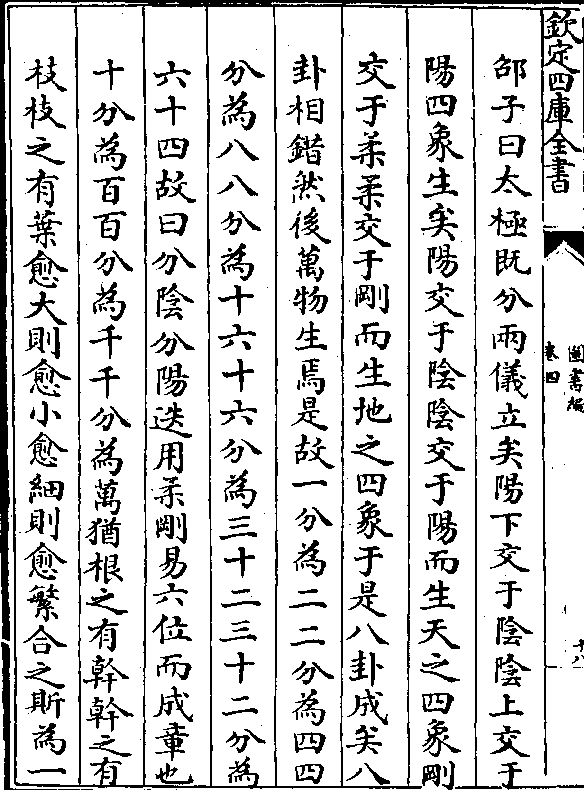 欽定四庫全書
圖書編
卷四
十八
邵子曰太極既分兩儀立矣陽下交于陰陰上交于
陽四象生矣陽交于陰陰交于陽而生天之四象剛
交于柔柔交于剛而生地之四象于是八卦成矣八
卦相錯然後萬物生焉是故一分為二二分為四四
分為八八分為十六十六分為三十二三十二分為
六十四故曰分陰分陽迭用柔剛易六位而成章也
十分為百百分為千千分為萬猶根之有幹幹之有
枝枝之有葉愈大則愈小愈細則愈繁合之斯為一